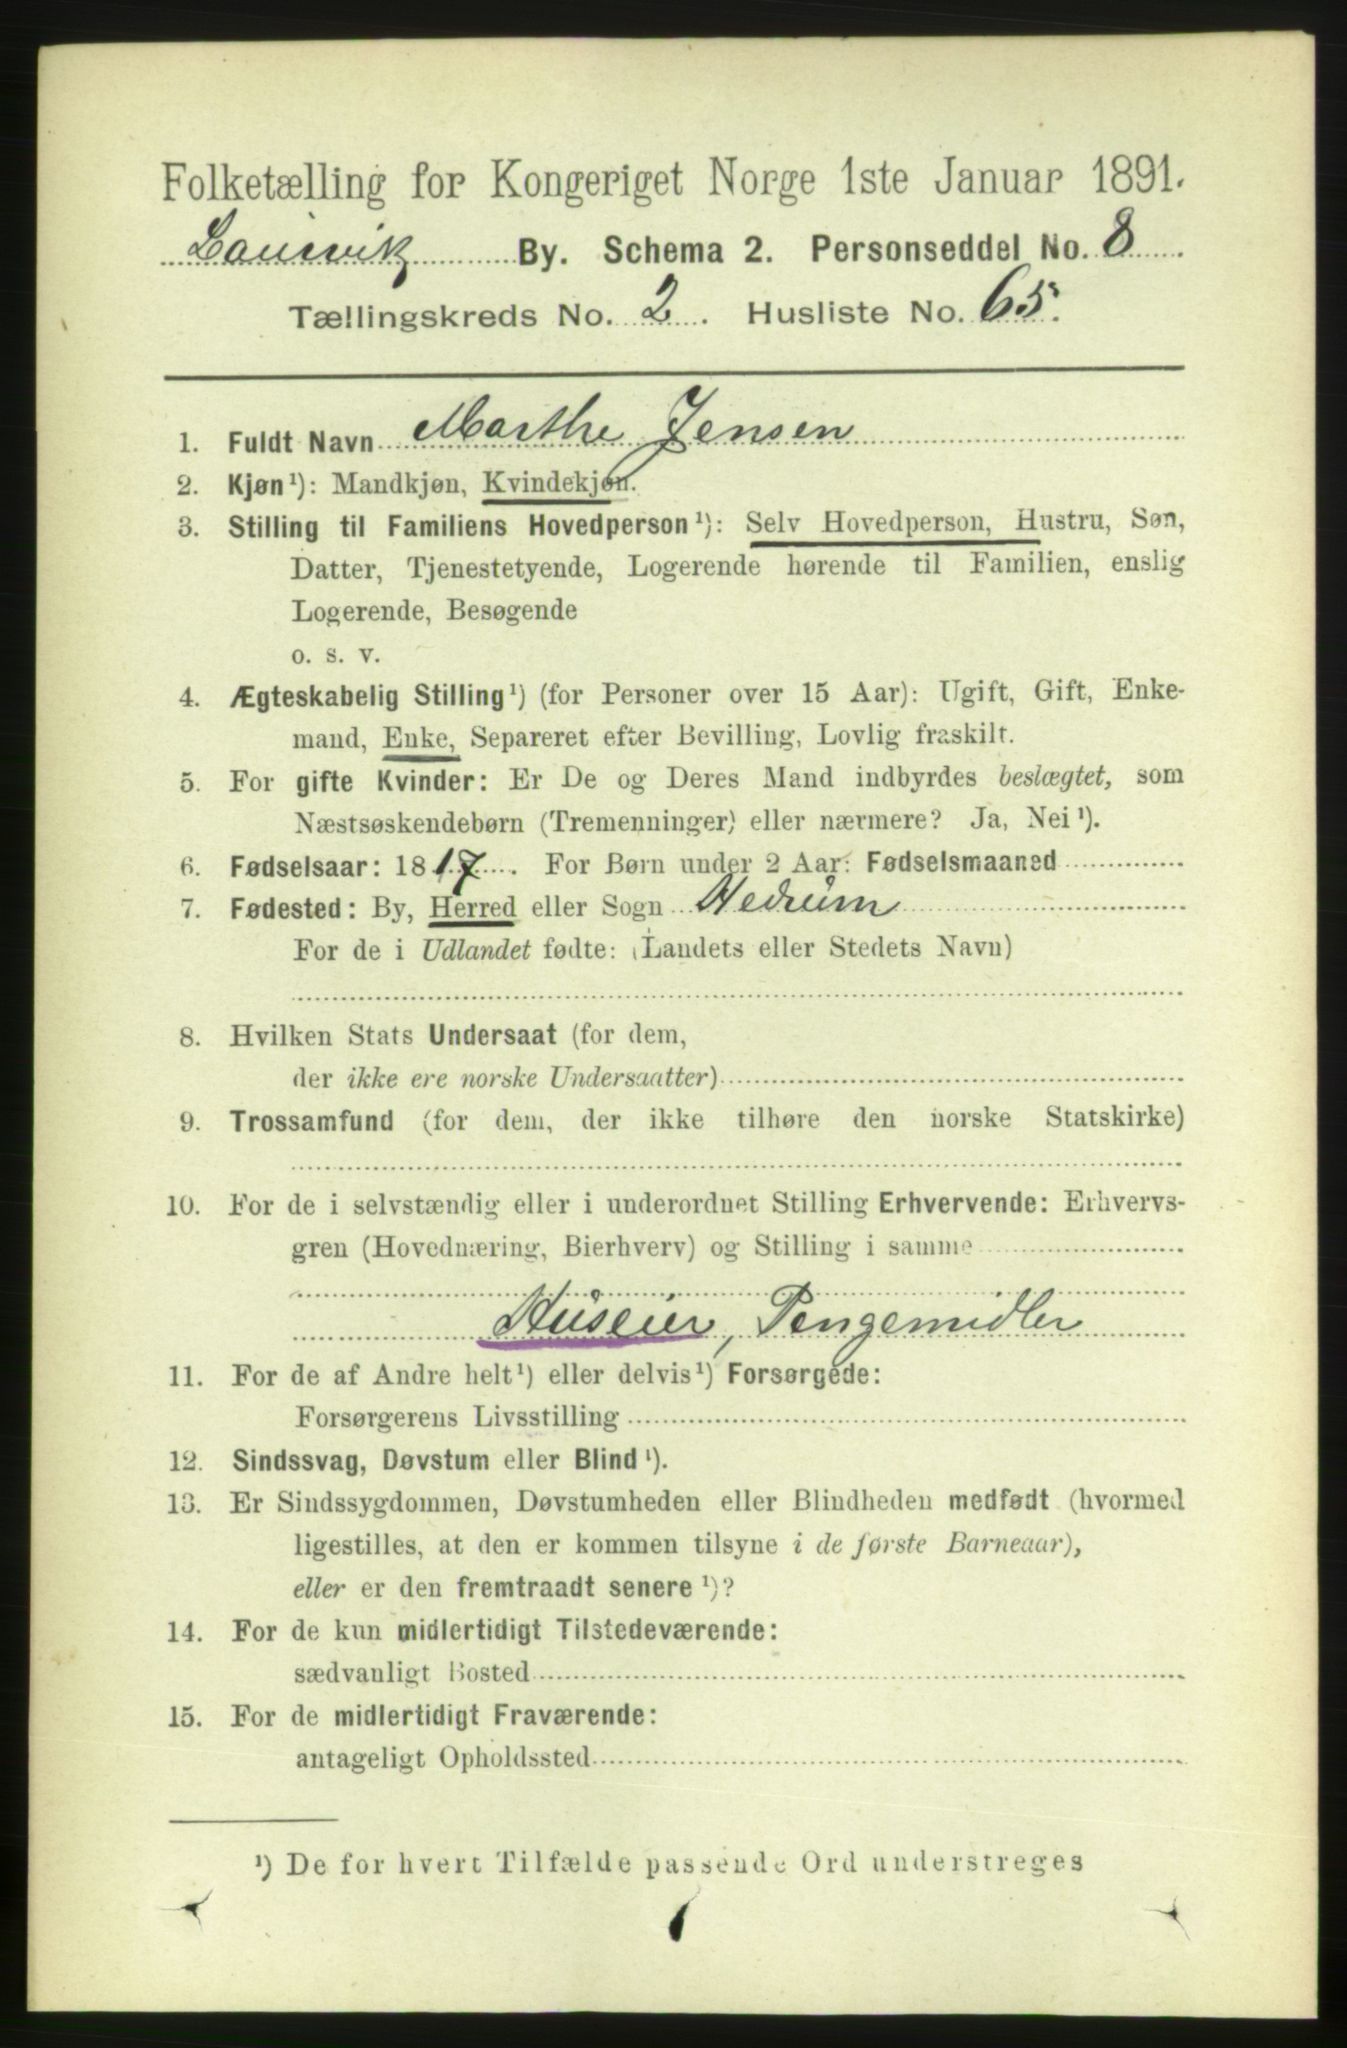 Folketælling for Kongeriget Norge 1ste Januar 1891.
Laurvik By. Schema 2. Personseddel No. 8
Tællingskreds No. 2. Husliste No. 65.
1. Fuldt Navn Marthe Jensen
2. Kjøn¹): Mandkjøn, Kvindekjøn.
3. Stilling til Familiens Hovedperson¹): Selv Hovedperson, Hustru, Søn,
Datter, Tjenestetyende, Logerende hørende til Familien, enslig
Logerende, Besøgende
o. s. v.
4. Ægteskabelig Stilling¹) (for Personer over 15 Aar): Ugift, Gift, Enke-
mand, Enke, Separeret efter Bevilling, Lovlig fraskilt.
5. For gifte Kvinder: Er De og Deres Mand indbyrdes beslægtet, som
Næstsøskendebørn (Tremenninger) eller nærmere? Ja, Nei¹).
6. Fødselsaar: 1817. For Børn under 2 Aar: Fødselsmaaned
7. Fødested: By, Herred eller Sogn Hedrum
For de i Udlandet fødte: (Landets eller Stedets Navn)
8. Hvilken Stats Undersaat (for dem,
der ikke ere norske Undersaatter)
9. Trossamfund (for dem, der ikke tilhøre den norske Statskirke)
10. For de i selvstændig eller i underordnet Stilling Erhvervende: Erhvervs-
gren (Hovednæring, Bierhverv) og Stilling i samme
Huseier, Pengemidler
11. For de af Andre helt¹) eller delvis¹) Forsørgede:
Forsørgerens Livsstilling
12. Sindssvag, Døvstum eller Blind¹).
13. Er Sindssygdommen, Døvstumheden eller Blindheden medfødt (hvormed
ligestilles, at den er kommen tilsyne i de første Barneaar),
eller er den fremtraadt senere¹)?
14. For de kun midlertidigt Tilstedeværende:
sædvanligt Bosted
15. For de midlertidigt Fraværende:
antageligt Opholdssted
¹) De for hvert Tilfælde passende Ord understreges